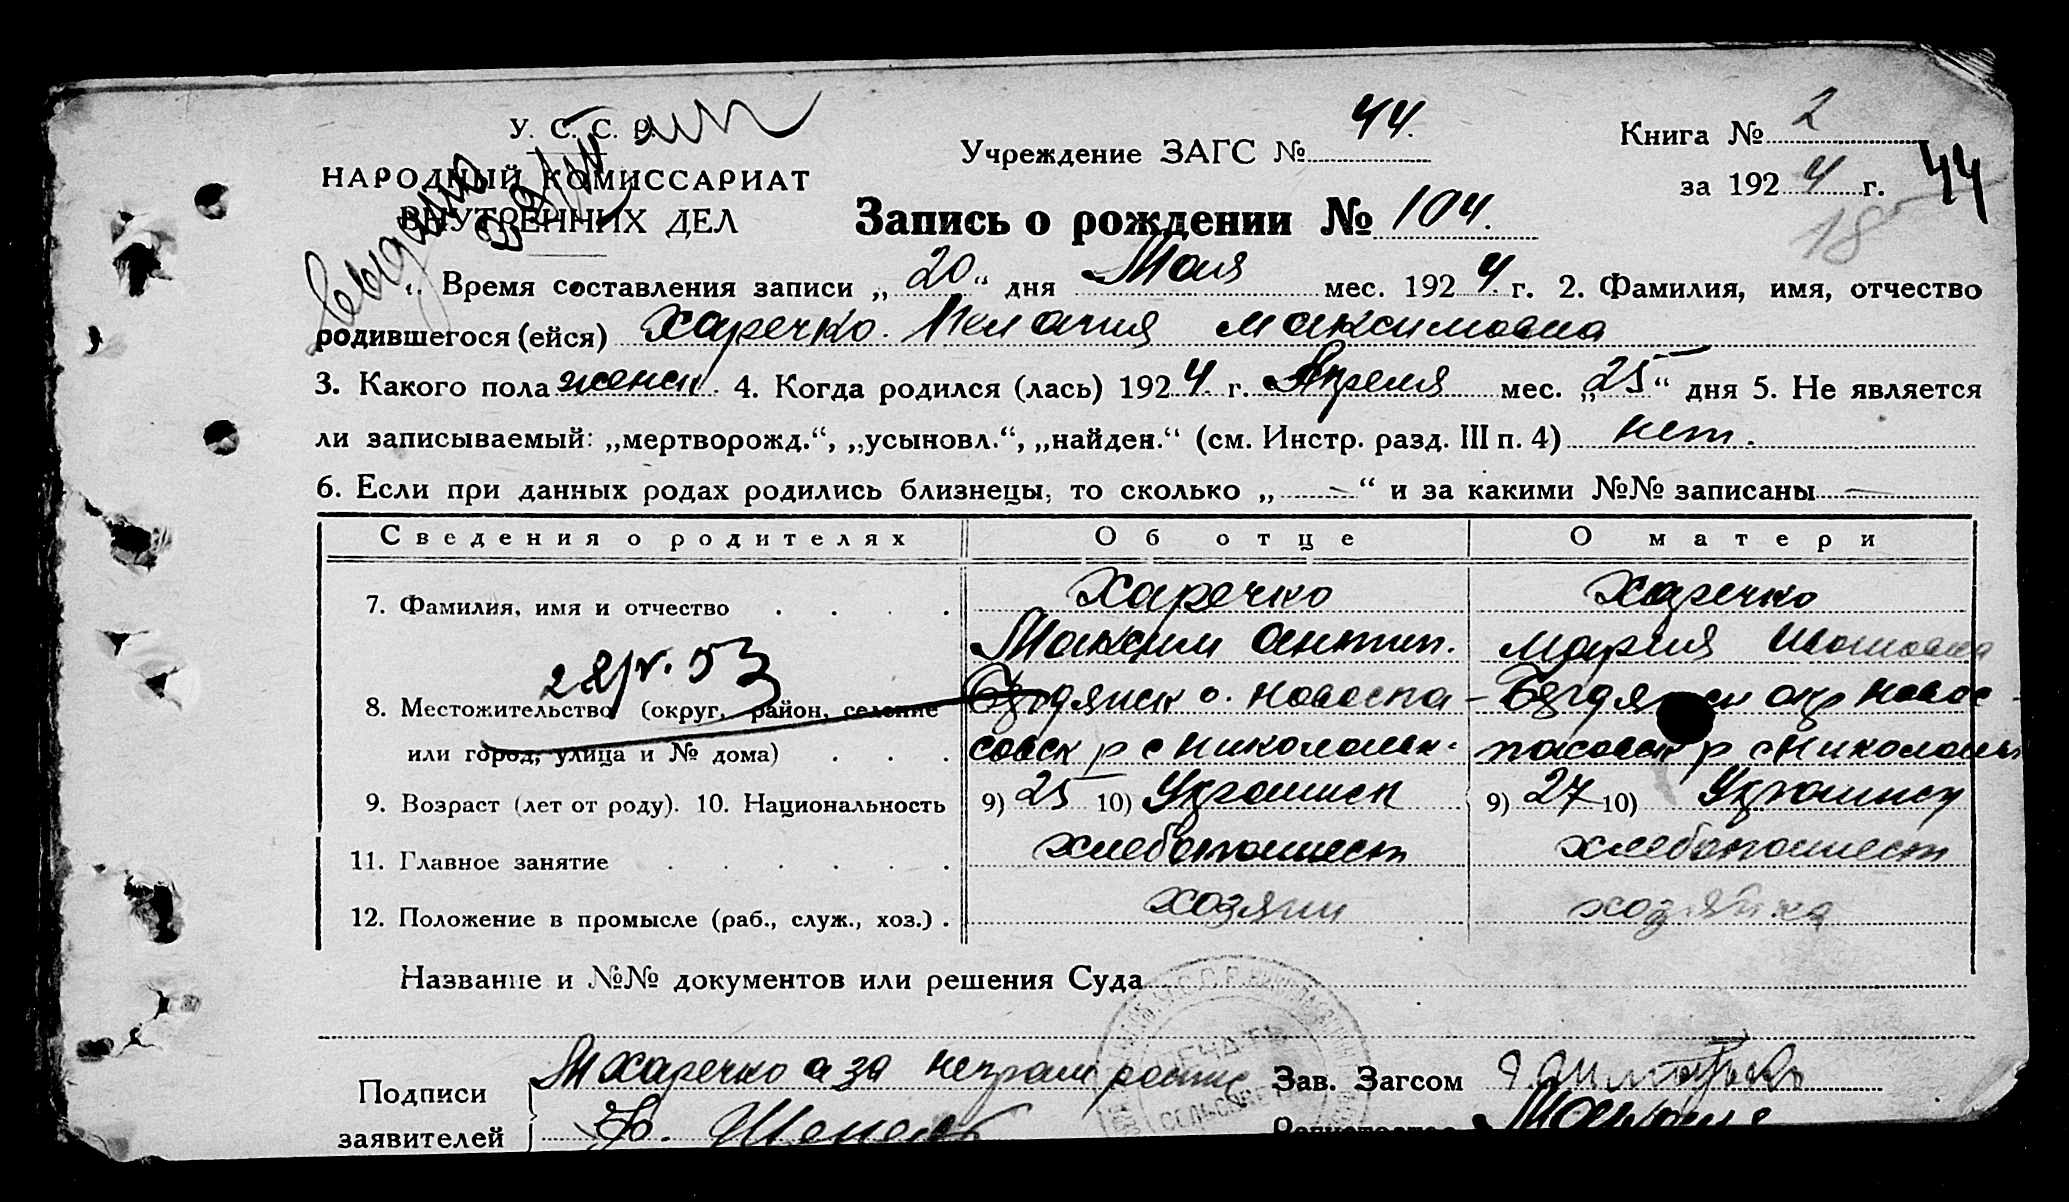 У. С. С. Р.
НАРОДНЫЙ КОМИССАРИАТ
ВНУТРЕННИХ ДЕЛ
Учреждение ЗАГС № 44.
Книга № 2
за 1924 г. 44
18
Запись о рождении № 104.
Время составления записи „20“ дня Мая мес. 1924 г. 2. Фамилия, имя, отчество
родившегося (ейся) Харечко Пелагия Максимовна
3. Какого пола женск. 4. Когда родился (лась) 1924 г. Апреля мес. „25“ дня 5. Не является
ли записываемый: „мертворожд.“, „усыновл.“, „найден.“ (см. Инстр. разд. III п. 4) нет.
6. Если при данных родах родились близнецы, то сколько „—“ и за какими №№ записаны —
Сведения о родителях Об отце О матери
7. Фамилия, имя и отчество . . . . Харечко Харечко
Максим Антип. Мария
8. Местожительство (округ, район, селение Бердянск о. Новоспа- Бердянск окр Новос-
или город, улица и № дома) . . . совск р с Николаевк. пасовск р с Николаевк
9. Возраст (лет от роду). 10. Национальность 9) 25 10) Украинск 9) 27 10) Украинск
11. Главное занятие . . . . . . хлебопашест хлебопашест
12. Положение в промысле (раб., служ., хоз.) . хозяин хозяйка
Название и №№ документов или решения Суда
Подписи
заявителей
М Харечко а за неграм роспис
Зав. Загсом